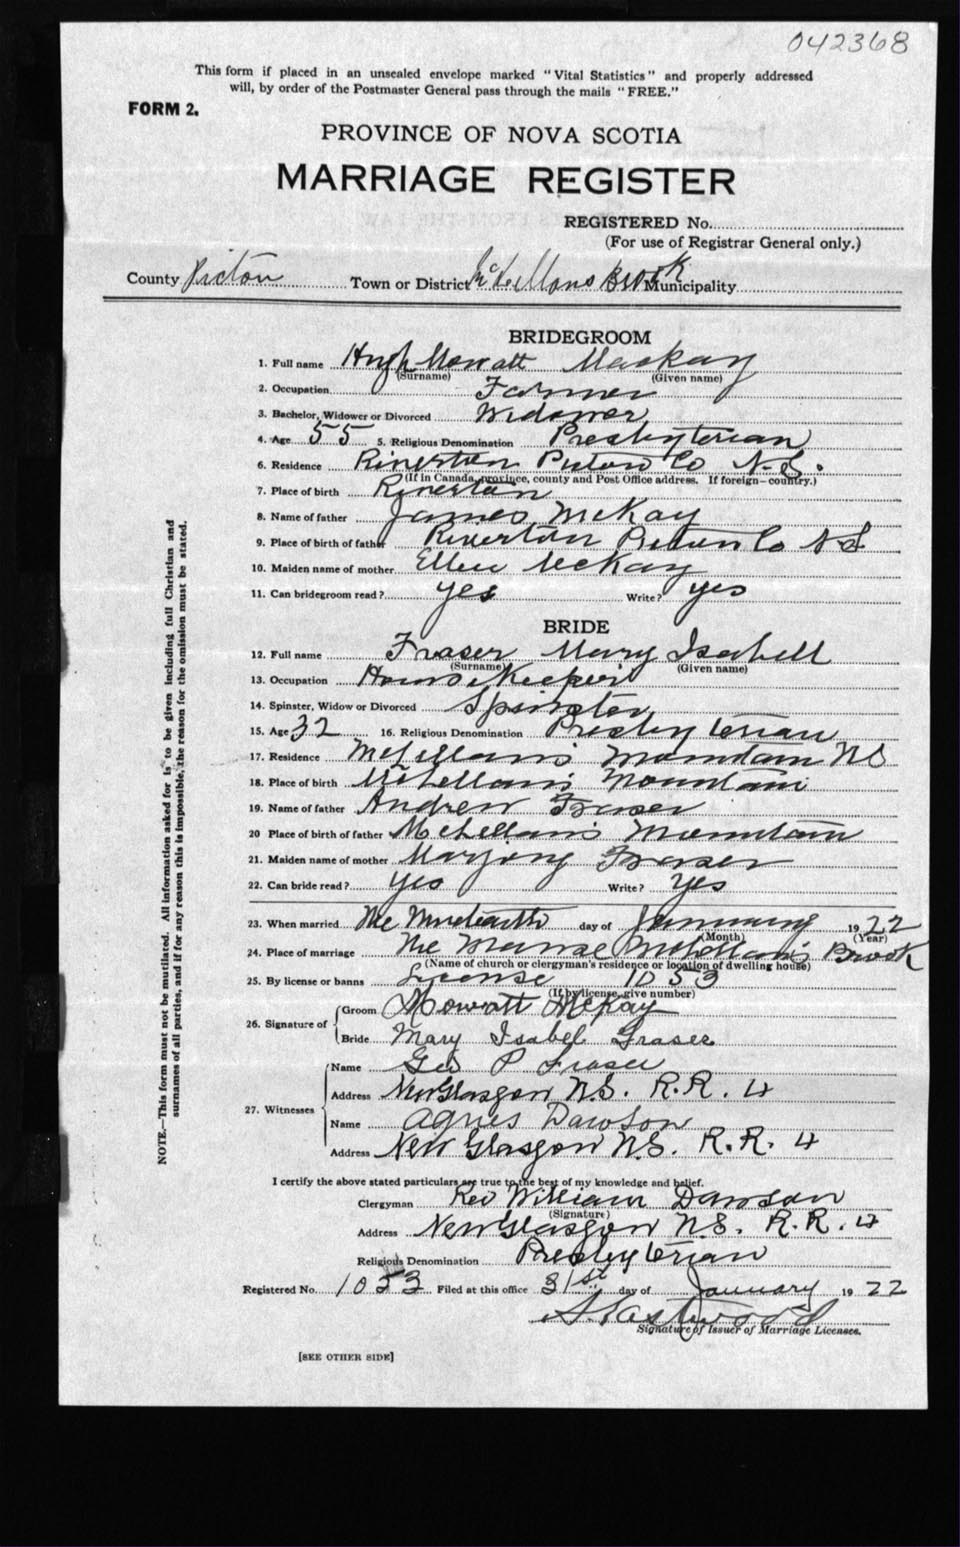 042368
This form if placed in an unsealed envelope marked "Vital Statistics" and properly addressed
will, by order of the Postmaster General pass through the mails "FREE."
FORM 2.
PROVINCE OF NOVA SCOTIA
MARRIAGE REGISTER
REGISTERED No.
(For use of Registrar General only.)
County Pictou Town or District McLellans Brook Municipality
BRIDEGROOM
1. Full name Hugh Mowatt Mackay
(Surname) (Given name)
2. Occupation Farmer
3. Bachelor, Widower or Divorced Widower
4. Age 55 5. Religious Denomination Presbyterian
6. Residence Riverton Pictou Co N.S.
(If in Canada, province, county and Post Office address. If foreign—country.)
7. Place of birth Riverton
8. Name of father James McKay
9. Place of birth of father Riverton Pictou Co N S
10. Maiden name of mother Ellen McKay
11. Can bridegroom read? yes Write? yes
BRIDE
12. Full name Fraser Mary Isabell
(Surname) (Given name)
13. Occupation House Keeper
14. Spinster, Widow or Divorced Spinster
15. Age 32 16. Religious Denomination Presbyterian
17. Residence McLellans Mountain NS
18. Place of birth McLellan's Mountain
19. Name of father Andrew Fraser
20 Place of birth of father McLellan's Mountain
21. Maiden name of mother Marjory Fraser
22. Can bride read? yes Write? yes
23. When married The day of January 1922
(Month) (Year)
24. Place of marriage The Manse McLellan's Brook
(Name of church or clergyman's residence or location of dwelling house)
25. By license or banns License 1053
(If by license, give number)
26. Signature of Groom Mowatt McKay
Bride Mary Isabel Fraser
27. Witnesses Name Geo P Fraser
Address New Glasgow N.S. R.R. 4
Name Agnes Dawson
Address New Glasgow N.S. R.R. 4
I certify the above stated particulars are true to the best of my knowledge and belief.
Clergyman Rev William Dawson
(Signature)
Address New Glasgow N.S. R.R. 4
Religious Denomination Presbyterian
Registered No. 1053 Filed at this office 31st day of January 1922
Signature of Issuer of Marriage Licenses.
[SEE OTHER SIDE]
NOTE.—This form must not be mutilated. All information asked for is to be given including full Christian and
surnames of all parties, and if for any reason this is impossible, the reason for the omission must be stated.